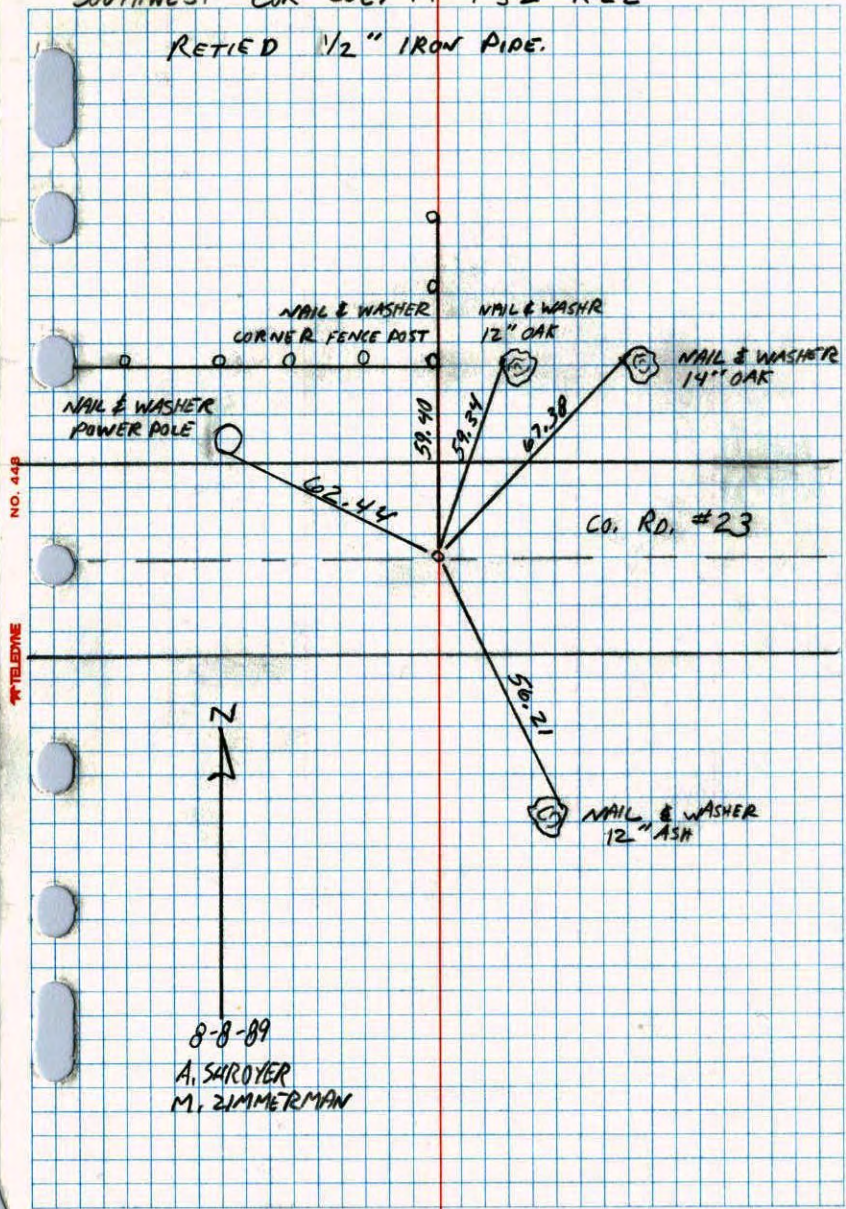 RETIED 1/2" IRON PIPE.
NAIL & WASHER
CORNER FENCE POST
NAIL & WASHR
12" OAK
NAIL & WASHER
14" OAK
NAIL & WASHER
POWER POLE
59.40
59.34
67.38
62.44
CO. RD. #23
56.21
N
NAIL & WASHER
12" ASH
8-8-89
A. SHROYER
M. ZIMMERMAN
NO. 448
TELEDYNE